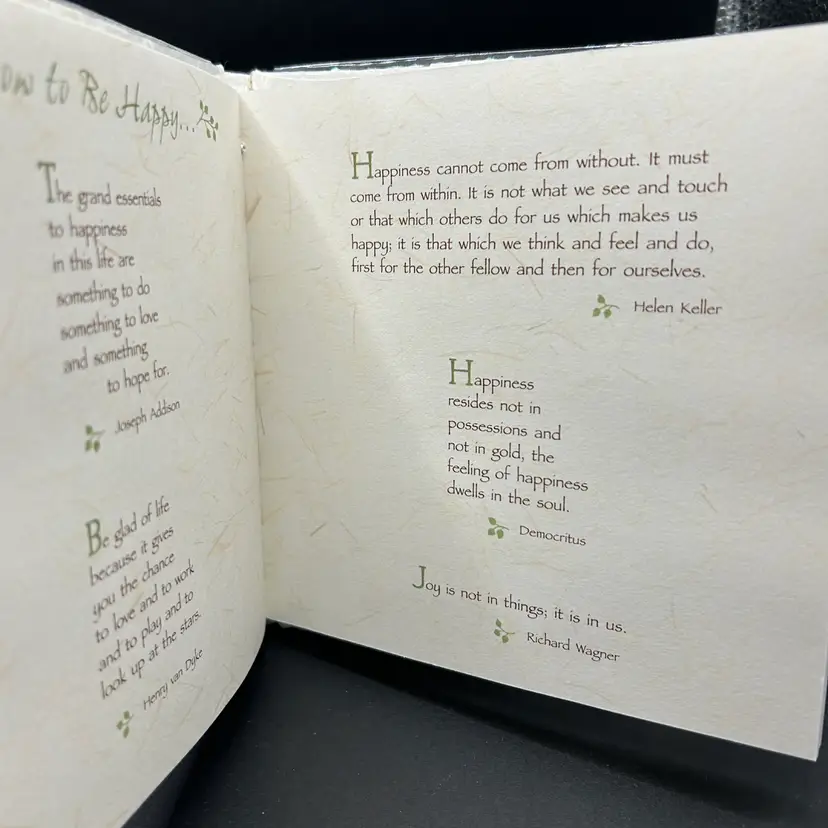 to Be Happy...
The grand essentials
to happiness
in this life are
something to do
something to love
and something
to hope for.
Joseph Addison
Be glad of life
because it gives
you the chance
to love and to work
and to play and to
look up at the stars.
Henry van Dyke
Happiness cannot come from without. It must
come from within. It is not what we see and touch
or that which others do for us which makes us
happy; it is that which we think and feel and do,
first for the other fellow and then for ourselves.
Helen Keller
Happiness
resides not in
possessions and
not in gold, the
feeling of happiness
dwells in the soul.
Democritus
Joy is not in things; it is in us.
Richard Wagner